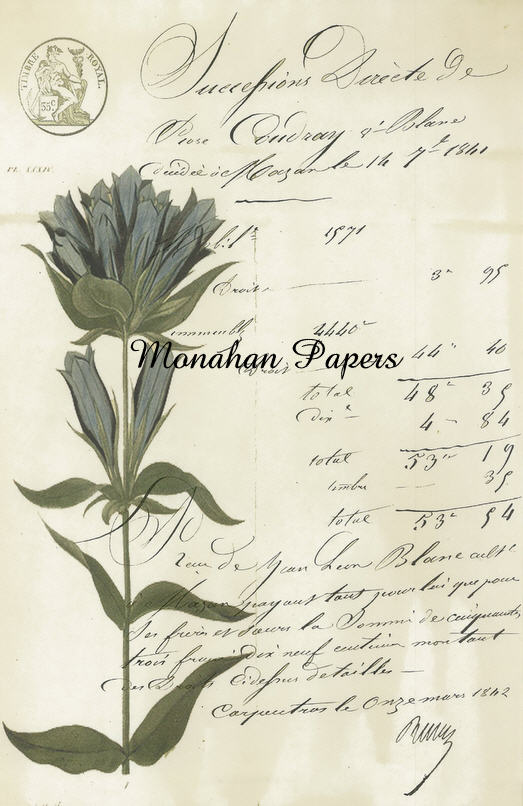 TIMBRE ROYAL
35c
Successions Directe De
Rose Coudray Vve Blanc
décédée à Mazan le 14 7bre 1841
PL. LXXIV.
1571
Droit 3" 95
immeubles 4440"
Monahan Papers
Droit 44" 40
total 48" 35
dixe 4 - 84
total 53" 19
timbre — 35
total 53" 54
Reçu de Jean Leon Blanc cultr
Mazan payant tant pour lui que pour
ses freres et sœurs la Somme de cinquante
trois francs dix neuf centimes montant
des Droits Cidessus détaillés —
Carpentras le Onze mars 1842